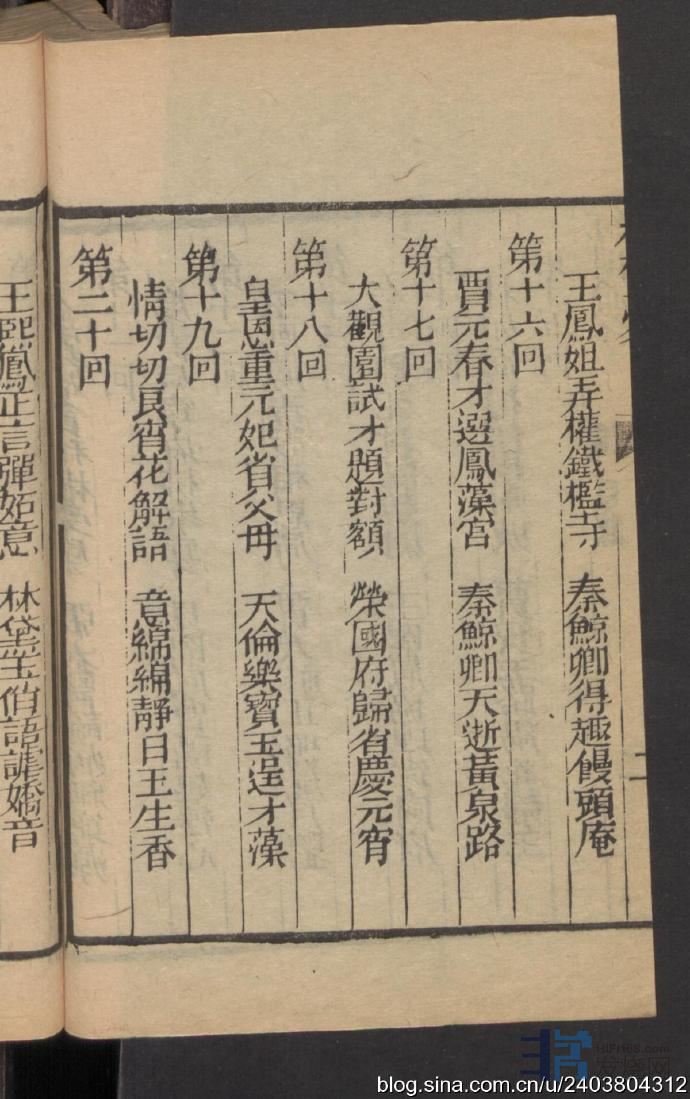 王鳳姐弄權鐵檻寺 秦鯨卿得趣饅頭庵
第十六回
賈元春才選鳳藻宮 秦鯨卿天逝黃泉路
第十七回
大觀園試才題對額 榮國府歸省慶元宵
第十八回
皇恩重元妃省父母 天倫樂寶玉逞才藻
第十九回
情切切良宵花解語 意綿綿靜日玉生香
第二十回
王熙鳳正言彈妬意 林黛玉俏語謔嬌音
二
HIFI168.com
blog.sina.com.cn/u/2403804312